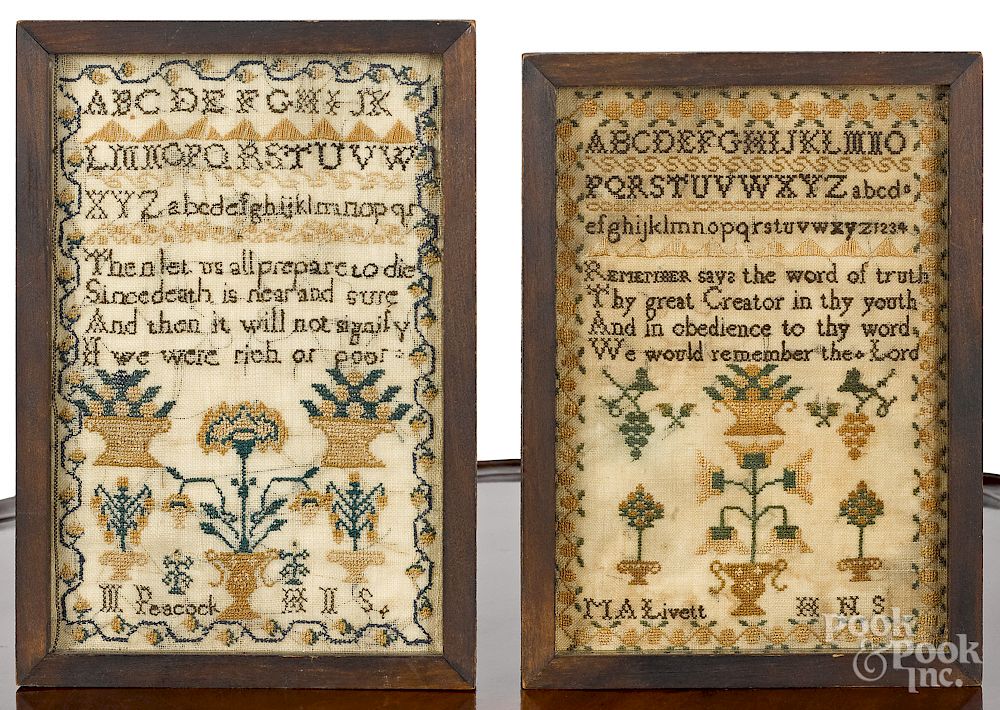 ABCDEFGHIJK
LMNOPQRSTUVW
XYZ abcdefghijklmnopqr
Then let us all prepare to die
Since death is near and sure
And then it will not signify
If we were rich or poor
M Peacock H N S
ABCDEFGHIJKLMNO
PQRSTUVWXYZ abcd
efghijklmnopqrstuvwxyz1234
REMEMBER says the word of truth
Thy great Creator in thy youth
And in obedience to thy word
We would remember the Lord
M A Livett H N S
Pook
& Pook
Inc.